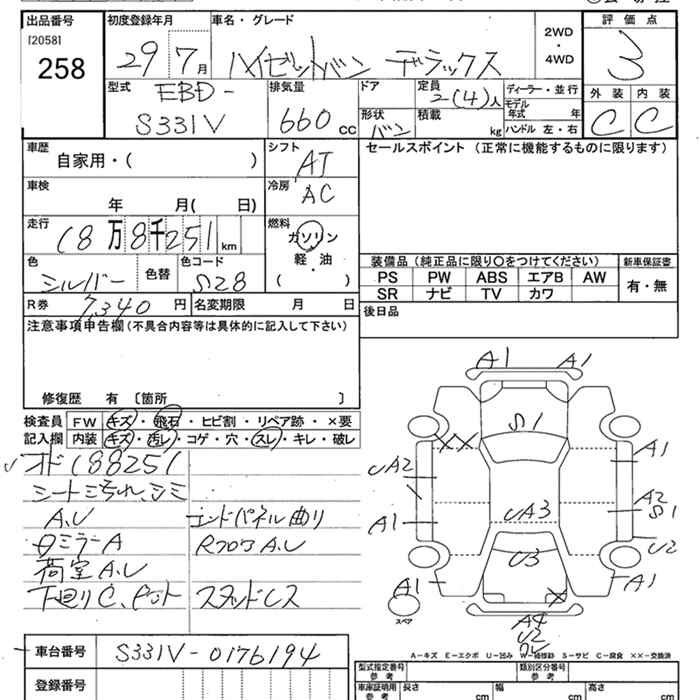 出品番号
[2058]
258
初度登録年月
29年 7月
車名・グレード
ハイゼットバン デラックス
2WD
・
4WD
評価点
3
外装 内装
C C
型式
EBD-
S331V
排気量
660cc
ドア
形状
バン
定員
2(4)人
積載
kg
ディーラー・並行
モデル年式 年
ハンドル 左・右
車歴
自家用・( )
シフト
AT
セールスポイント (正常に機能するものに限ります)
車検
年 月( 日)
冷房
AC
走行
18万8千251km
燃料
ガソリン
軽・油
( )
色
シルバー
色替
色コード
S28
装備品 (純正品に限り〇をつけてください)
PS PW ABS エアB AW
SR ナビ TV カワ
新車保証書
有・無
R券 7,340円
名変期限 月 日
後日品
注意事項申告欄(不具合内容等は具体的に記入して下さい)
修復歴 有 〔箇所 〕
検査員
記入欄
FW キズ・飛石・ヒビ割・リペア跡・×要
内装 キズ・汚レ・コゲ・穴・スレ・キレ・破レ
オド188251
シート
A,U エンドパネル曲り
ミラーA Rフロア A,U
荷室A,U
下廻りC、 スタッドレス
車台番号 S331V-0176194
登録番号
A1 A1
S1
UA2 A1
UA3
A2
S1
A1 U2
U3
A1 A1
スペア
A4
U2
A-キズ E-エクボ U-凹み W-補修跡 S-サビ C-腐食 ××-交換済
型式指定番号
参考
類別区分番号
参考
車庫証明用
参考
長さ cm 幅 cm 高さ cm